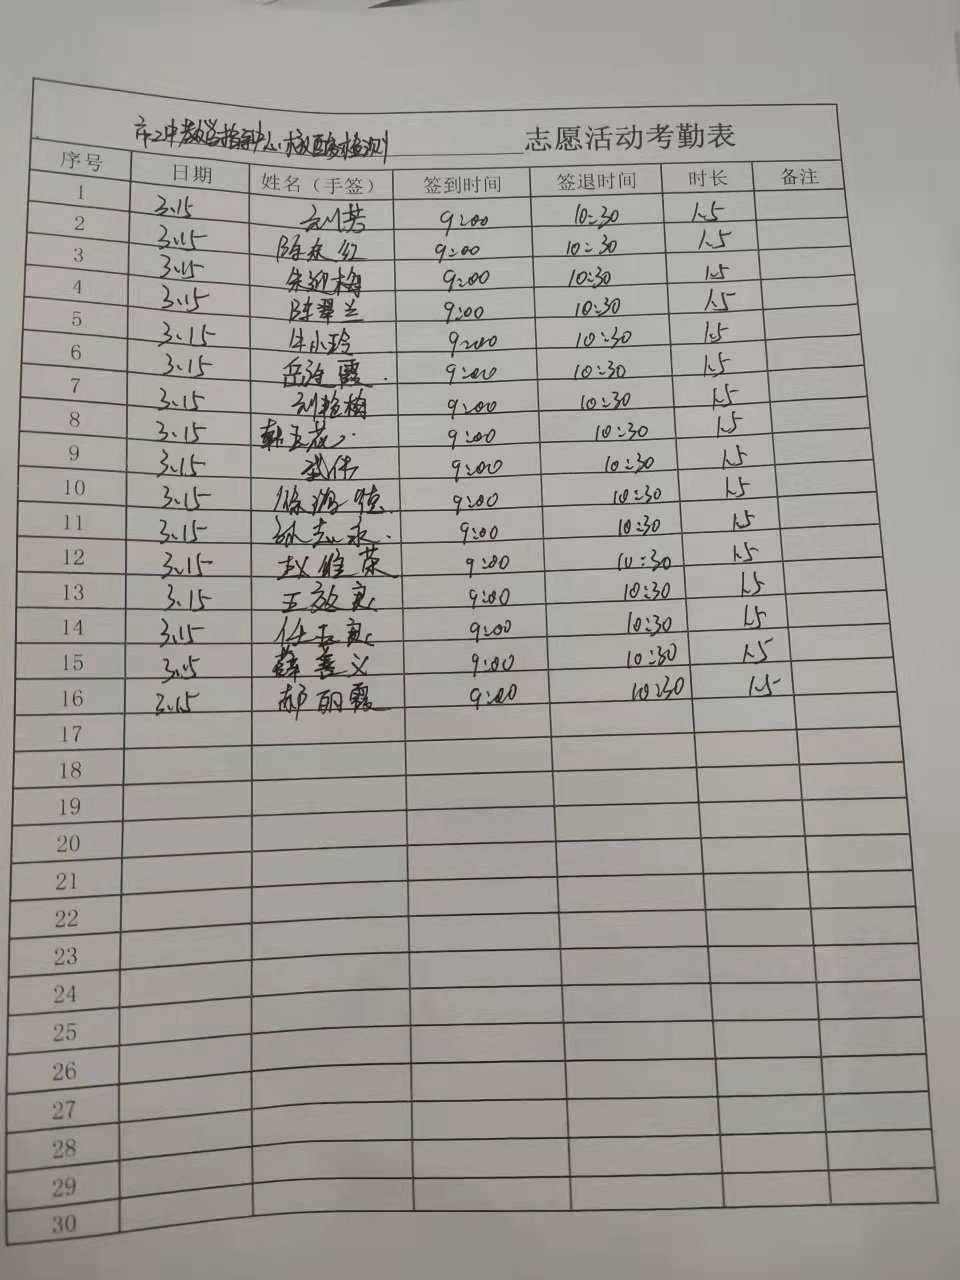 核酸检测 志愿活动考勤表
序号 日期 姓名（手签） 签到时间 签退时间 时长 备注
1 3.15 刘芳 9:00 10:30 1.5
2 3.15 9:00 10:30 1.5
3 3.15 朱迎梅 9:00 10:30 1.5
4 3.15 陈翠兰 9:00 10:30 1.5
5 3.15 牛小玲 9:00 10:30 1.5
6 3.15 9:00 10:30 1.5
7 3.15 9:00 10:30 1.5
8 3.15 韩玉花 9:00 10:30 1.5
9 3.15 武伟 9:00 10:30 1.5
10 3.15 9:00 10:30 1.5
11 3.15 孙志永 9:00 10:30 1.5
12 3.15 赵维荣 9:00 10:30 1.5
13 3.15 9:00 10:30 1.5
14 3.15 9:00 10:30 1.5
15 3.15 薛善义 9:00 10:30 1.5
16 3.15 郝丽霞 9:00 10:30 1.5
17
18
19
20
21
22
23
24
25
26
27
28
29
30